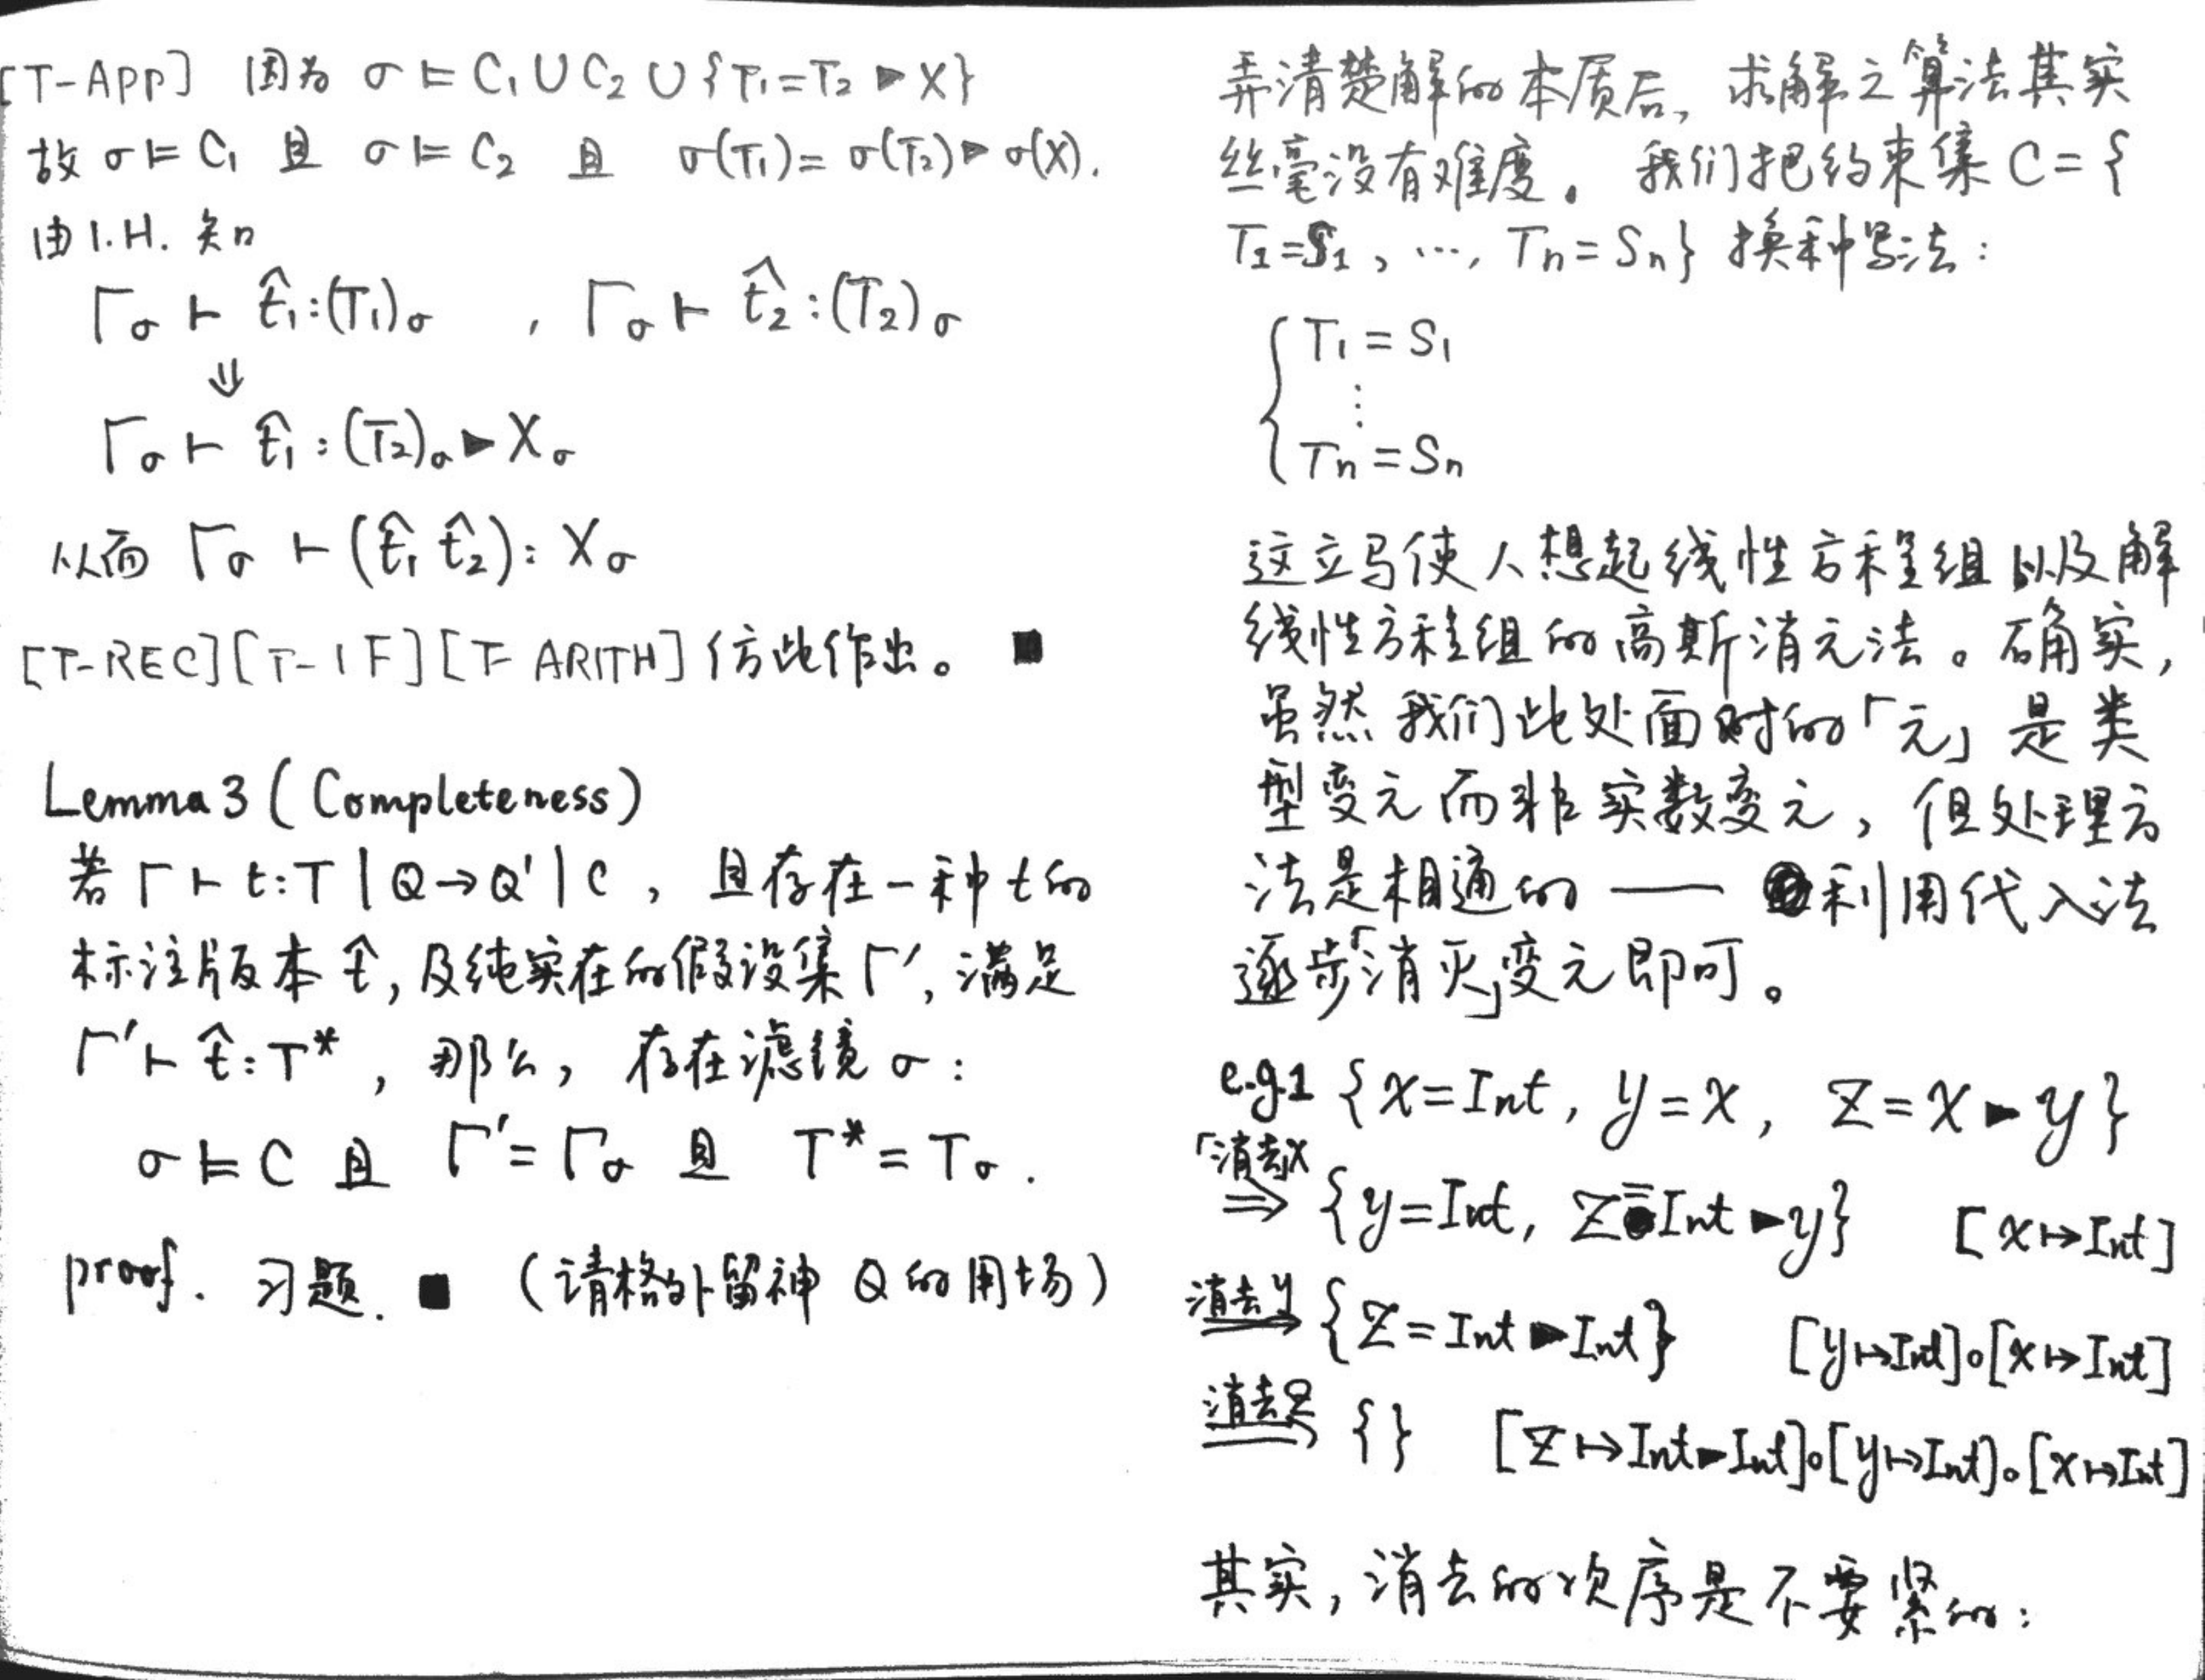 [T-APP] 因为 σ ⊨ C₁∪C₂∪{T₁=T₂ ▶ X}
故 σ ⊨ C₁ 且 σ ⊨ C₂ 且 σ(T₁)=σ(T₂)▶σ(X).
由 I.H. 知
Γσ ⊢ t̂₁:(T₁)σ , Γσ ⊢ t̂₂:(T₂)σ
⇓
Γσ ⊢ t̂₁:(T₂)σ ▶ Xσ
从而 Γσ ⊢ (t̂₁ t̂₂): Xσ
[T-REC][T-IF][T-ARITH]仿此作出。 ■
Lemma 3 (Completeness)
若 Γ ⊢ t:T | Q→Q' | C , 且存在一种 t 的
标注版本 t̂, 及纯实在的假设集 Γ', 满足
Γ' ⊢ t̂:T* , 那么, 存在滤镜 σ :
σ ⊨ C 且 Γ' = Γσ 且 T* = Tσ .
proof. 习题. ■ (请格外留神 Q 的用场)
弄清楚解的本质后, 求解之算法其实
丝毫没有难度。 我们把约束集 C = {
T₁=S₁, …, Tn=Sn} 换种写法:
{ T₁ = S₁
⋮
Tn = Sn
这立马使人想起线性方程组以及解
线性方程组的高斯消元法。确实,
虽然我们此处面对的「元」是类
型变元而非实数变元, 但处理方
法是相通的 —— 利用代入法
逐步「消灭」变元即可。
e.g.1 {x=Int, y=x, z=x▶y}
「消去x
⇒ {y=Int, z=Int▶y} [x↦Int]
消去y
⇒ {z=Int▶Int} [y↦Int]∘[x↦Int]
消去z
⇒ {} [z↦Int▶Int]∘[y↦Int]∘[x↦Int]
其实, 消去的次序是不要紧的: